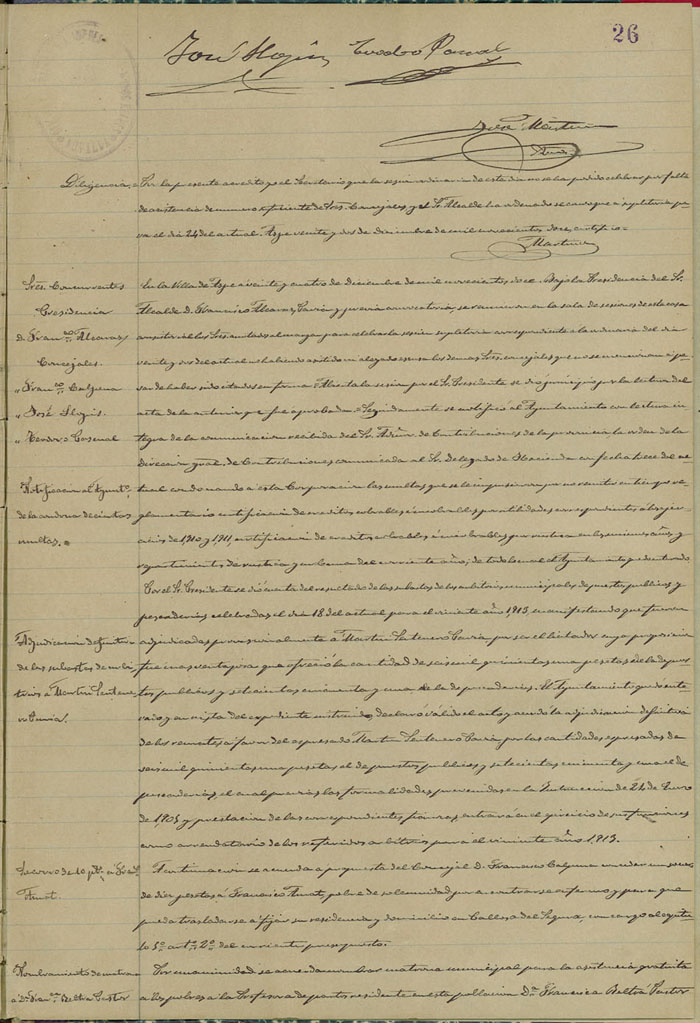 26
José Teodoro Pascual
José Martinez
Diligencia = Por la presente acredito yo el Secretario que la sesion ordinaria de este dia no se ha podido celebrar por falta
de asistencia de numero suficiente de Sres. Concejales y el Sr. Alcalde ha ordenado se convoque á supletoria pa-
ra el dia 24 del actual. Aspe veinte y dos de Diciembre de mil novecientos doce, certifico =
Martinez
Sres. Concurrentes
Presidencia
D. Franco. Alcaraz
Concejales
" Franco. Calpena
" José
" Teodoro Pascual
En la Villa de Aspe á veinte y cuatro de Diciembre de mil novecientos doce. Bajo la Presidencia del Sr.
Alcalde D. Francisco Alcaraz García y previa convocatoria, se reunieron en la sala de sesiones de esta casa
consistorial los Sres. anotados al margen para celebrar la sesion supletoria correspondiente á la ordinaria del dia
veinte y dos del actual, no habiendo asistido ni alegado escusa los demas Sres. concejales que no se mencionan á pe-
sar de haber sido citados en forma = Abierta la sesion por el Sr. Presidente se dió principio por la lectura del
acta de la anterior que fué aprobada = Seguidamente se notificó al Ayuntamiento con lectura in-
tegra de la comunicacion recibida del Sr. Admor. de Contribuciones de la provincia la orden de la
Direccion gral. de Contribuciones comunicada al Sr. Delegado de Hacienda con fecha del ac-
Notificacion al Ayunto.
de la condona de ciertas
multas. =
tual condonando á esta Corporacion las multas que se le impusieron por no remitir en tiempo re-
glamentario certificacion de creditos cobrables é incobrables por utilidades correspondientes á los ejer-
cicios de 1910 y 1911, certificacion de creditos cobrables é incobrables por rustica en los mismos años, y
repartimientos de rustica y urbana del corriente año, de todo lo cual el Ayunto. quedó enterado
Por el Sr. Presidente se dió cuenta del resultado de las subastas de los arbitrios municipales de puestos publicos y
pescaderias celebradas el dia 18 del actual para el viniente año 1913, manifestando que fueron
Adjudicacion definitiva
de las subastas de arbi-
trios á Martin
García
adjudicadas provisionalmente á Martin García por ser el licitador cuya proposicion
fué mas ventajosa que ofreció la cantidad de seis mil quinientas una pesetas de la de pues-
tos publicos y setecientas cincuenta y una de la de pescaderias. El Ayuntamiento quedó ente-
rado y en vista del expediente instruido declaró válido el acto y acordó la adjudicacion definitiva
de los remates á favor del expresado Martin García por las cantidades expresadas de
seis mil quinientas una pesetas el de puestos publicos y setecientas cincuenta y una el de
pescaderias, el cual previas las formalidades prevenidas en la Instruccion de 24 de Enero
de 1905 y prestacion de las correspondientes fianzas, entrará en el ejercicio de sus funciones
como arrendatario de los referidos arbitrios para el viniente año 1913.
Socorro de 10 pts. á Franco.
A continuacion se acuerda á propuesta del Concejal D. Francisco Calpena conceder un socorro
de diez pesetas á Francisco pobre de solemnidad por encontrarse enfermo y para que
pueda trasladarse á fijar su residencia y domicilio en Callosa del Segura, con cargo al capitu-
lo 5º arto. 2º del corriente presupuesto.
Nombramiento de matrona
á Da. Franca. Beltrá Pastor
Por unanimidad se acuerda nombrar matrona municipal para la asistencia gratuita
á los pobres á la Profesora de partos residente en esta poblacion Dª. Francisca Beltrá Pastor